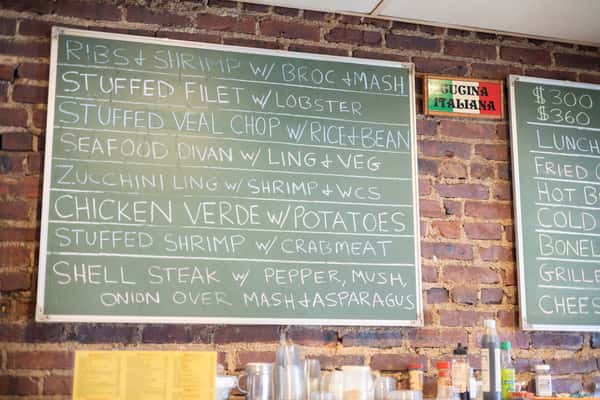 RIBS & SHRIMP W/ BROC & MASH
STUFFED FILET W/ LOBSTER
STUFFED VEAL CHOP W/ RICE & BEAN
SEAFOOD DIVAN W/ LING & VEG
ZUCCHINI LING W/ SHRIMP & WCS
CHICKEN VERDE W/ POTATOES
STUFFED SHRIMP W/ CRABMEAT
SHELL STEAK W/ PEPPER, MUSH,
ONION OVER MASH & ASPARAGUS
CUCINA
ITALIANA
$300
$360
LUNCH
FRIED
HOT
COLD
BONEL
GRILLE
CHEES